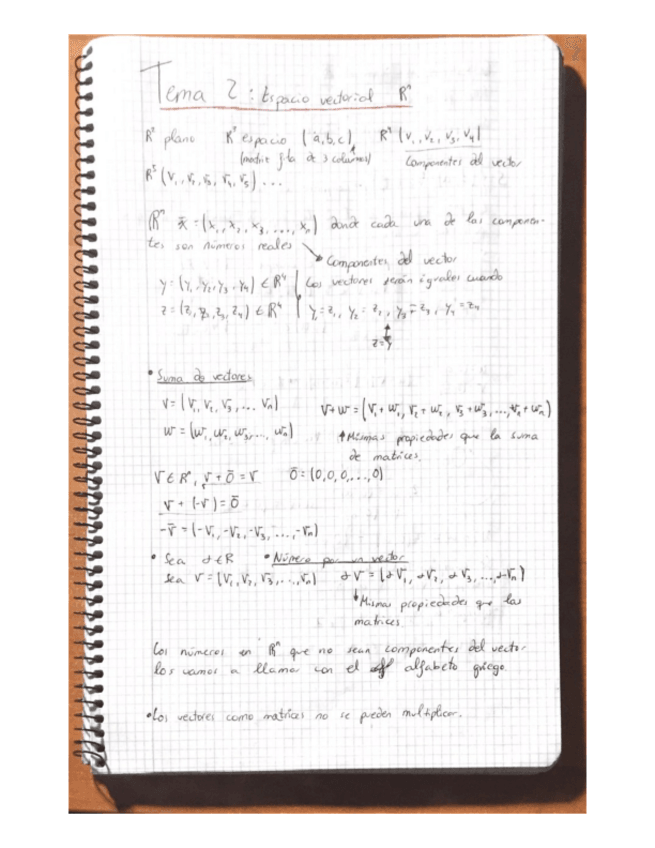 Tema 2: Espacio vectorial Rⁿ
R² plano R³ espacio (a,b,c) R⁴ (v₁, v₂, v₃, v₄)
(matriz fila de 3 columnas) Componentes del vector
R⁵ (v₁, v₂, v₃, v₄, v₅) ...
Rⁿ x̄ = (x₁, x₂, x₃, ..., xₙ) donde cada una de las componen-
tes son números reales
Componentes del vector
y = (y₁, y₂, y₃, y₄) ∈ R⁴ Los vectores serán iguales cuando
z = (z₁, z₂, z₃, z₄) ∈ R⁴ y₁ = z₁, y₂ = z₂, y₃ = z₃, y₄ = z₄
z = y
• Suma de vectores
v = (v₁, v₂, v₃, ... vₙ) v+w = (v₁+w₁, v₂+w₂, v₃+w₃, ..., vₙ+wₙ)
w = (w₁, w₂, w₃, ..., wₙ) Mismas propiedades que la suma
de matrices.
v ∈ Rⁿ, v + ō = v ō = (0,0,0,...,0)
v + (-v) = ō
-v̄ = (-v₁, -v₂, -v₃, ..., -vₙ)
• Sea α ∈ R • Número por un vector
sea v = (v₁, v₂, v₃, ..., vₙ) αv = (αv₁, αv₂, αv₃, ..., αvₙ)
Mismas propiedades que las
matrices.
Los números en Rⁿ que no sean componentes del vector
los vamos a llamar con el alfabeto griego.
• Los vectores como matrices no se pueden multiplicar.